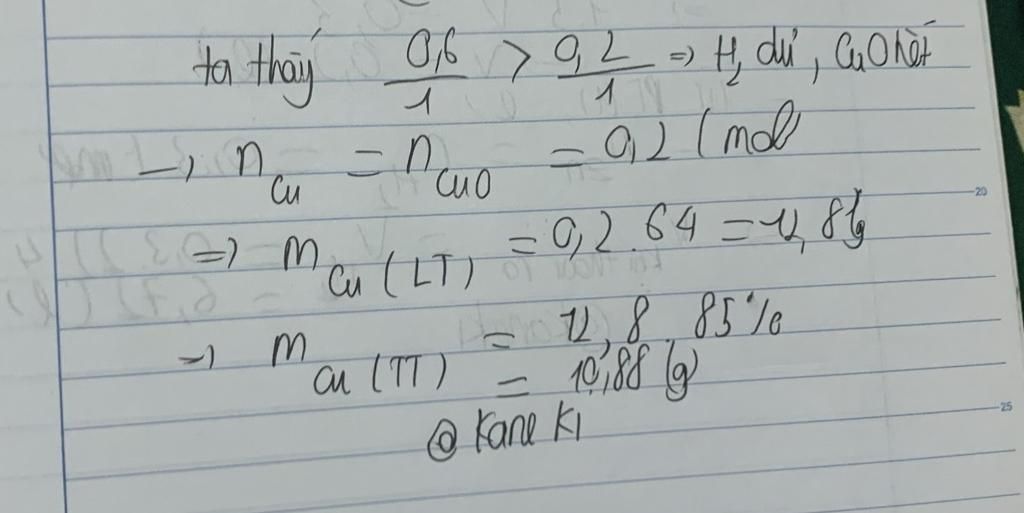 ta thấy 0,6/1 > 0,2/1 => H2 dư, CuO hết
→ n Cu = n CuO = 0,2 (mol
=> m Cu (LT) = 0,2 . 64 = 12,8 g
→ m Cu (TT) = 12,8 . 85%
= 10,88 (g)
@ Kane Ki
20
25